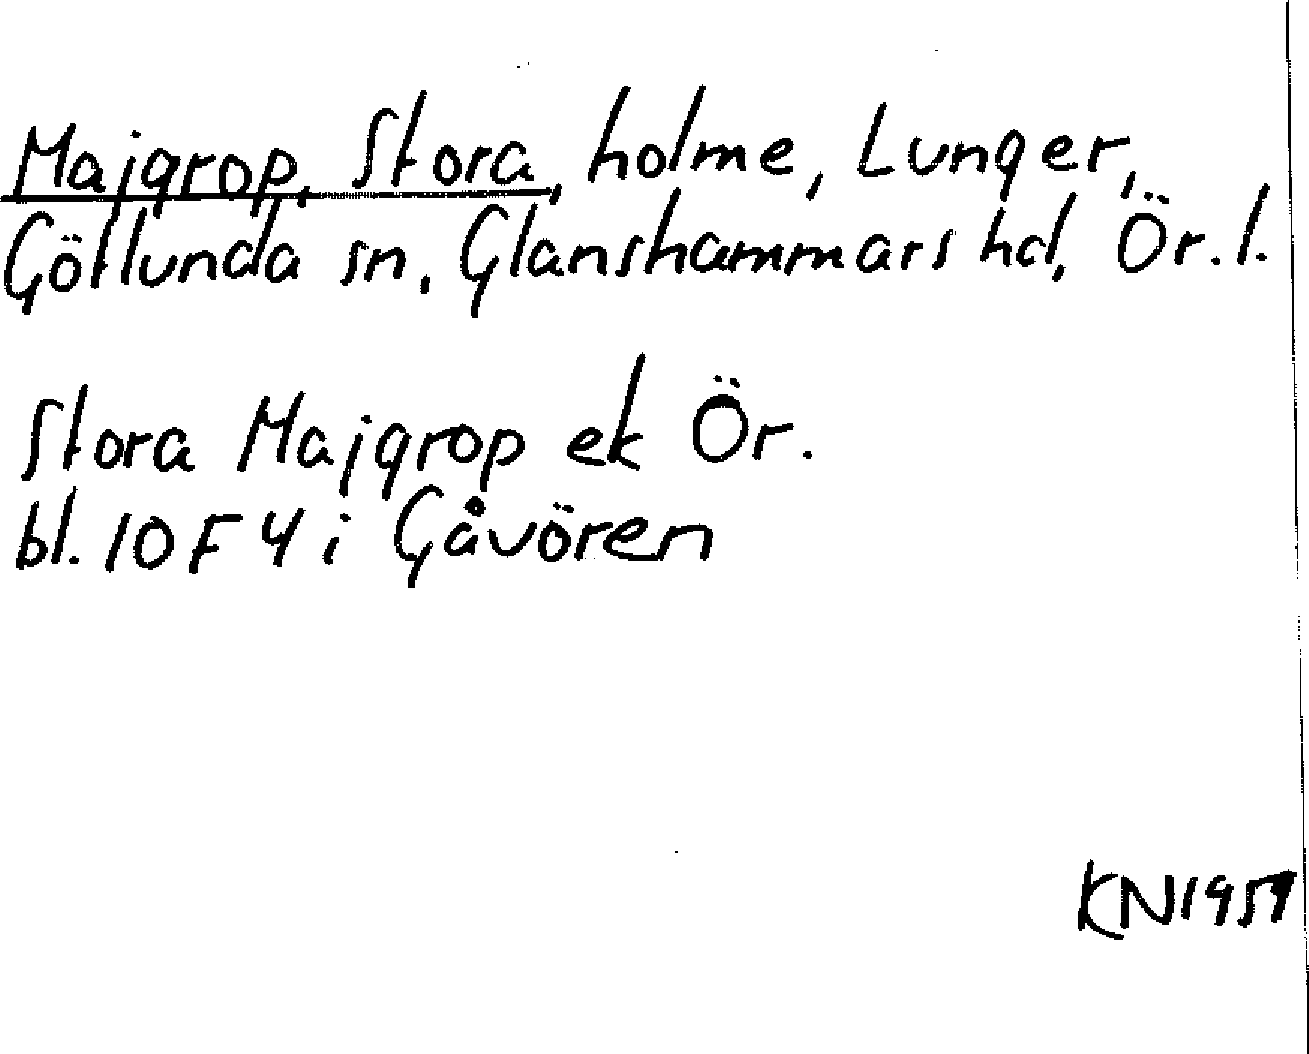 Majgrop, Stora, holme, Lunger,
Götlunda sn, Glanshammars hd, Ör. l.
Stora Majgrop ek Ör.
bl. 10 F 4 i Gåvören
KN 1957